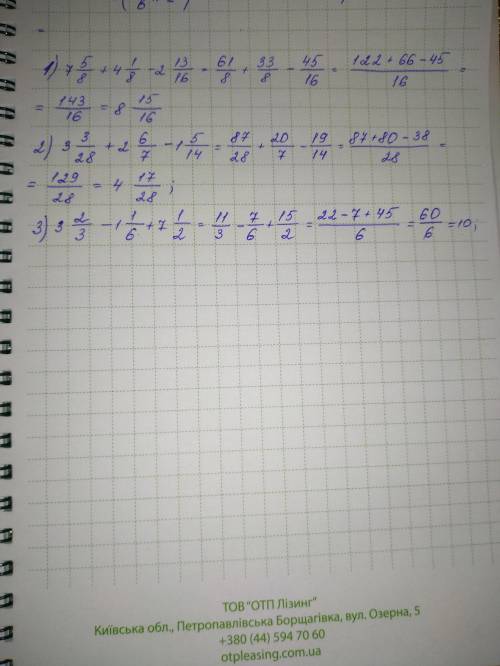 1) 7 5/8 + 4 1/8 - 2 13/16 = 61/8 + 33/8 - 45/16 = (122 + 66 - 45)/16 =
= 143/16 = 8 15/16
2) 3 3/28 + 2 6/7 - 1 5/14 = 87/28 + 20/7 - 19/14 = (87 + 80 - 38)/28 =
= 129/28 = 4 17/28 ;
3) 3 2/3 - 1 1/6 + 7 1/2 = 11/3 - 7/6 + 15/2 = (22 - 7 + 45)/6 = 60/6 = 10;
ТОВ "ОТП Лізинг"
Київська обл., Петропавлівська Борщагівка, вул. Озерна, 5
+380 (44) 594 70 60
otpleasing.com.ua